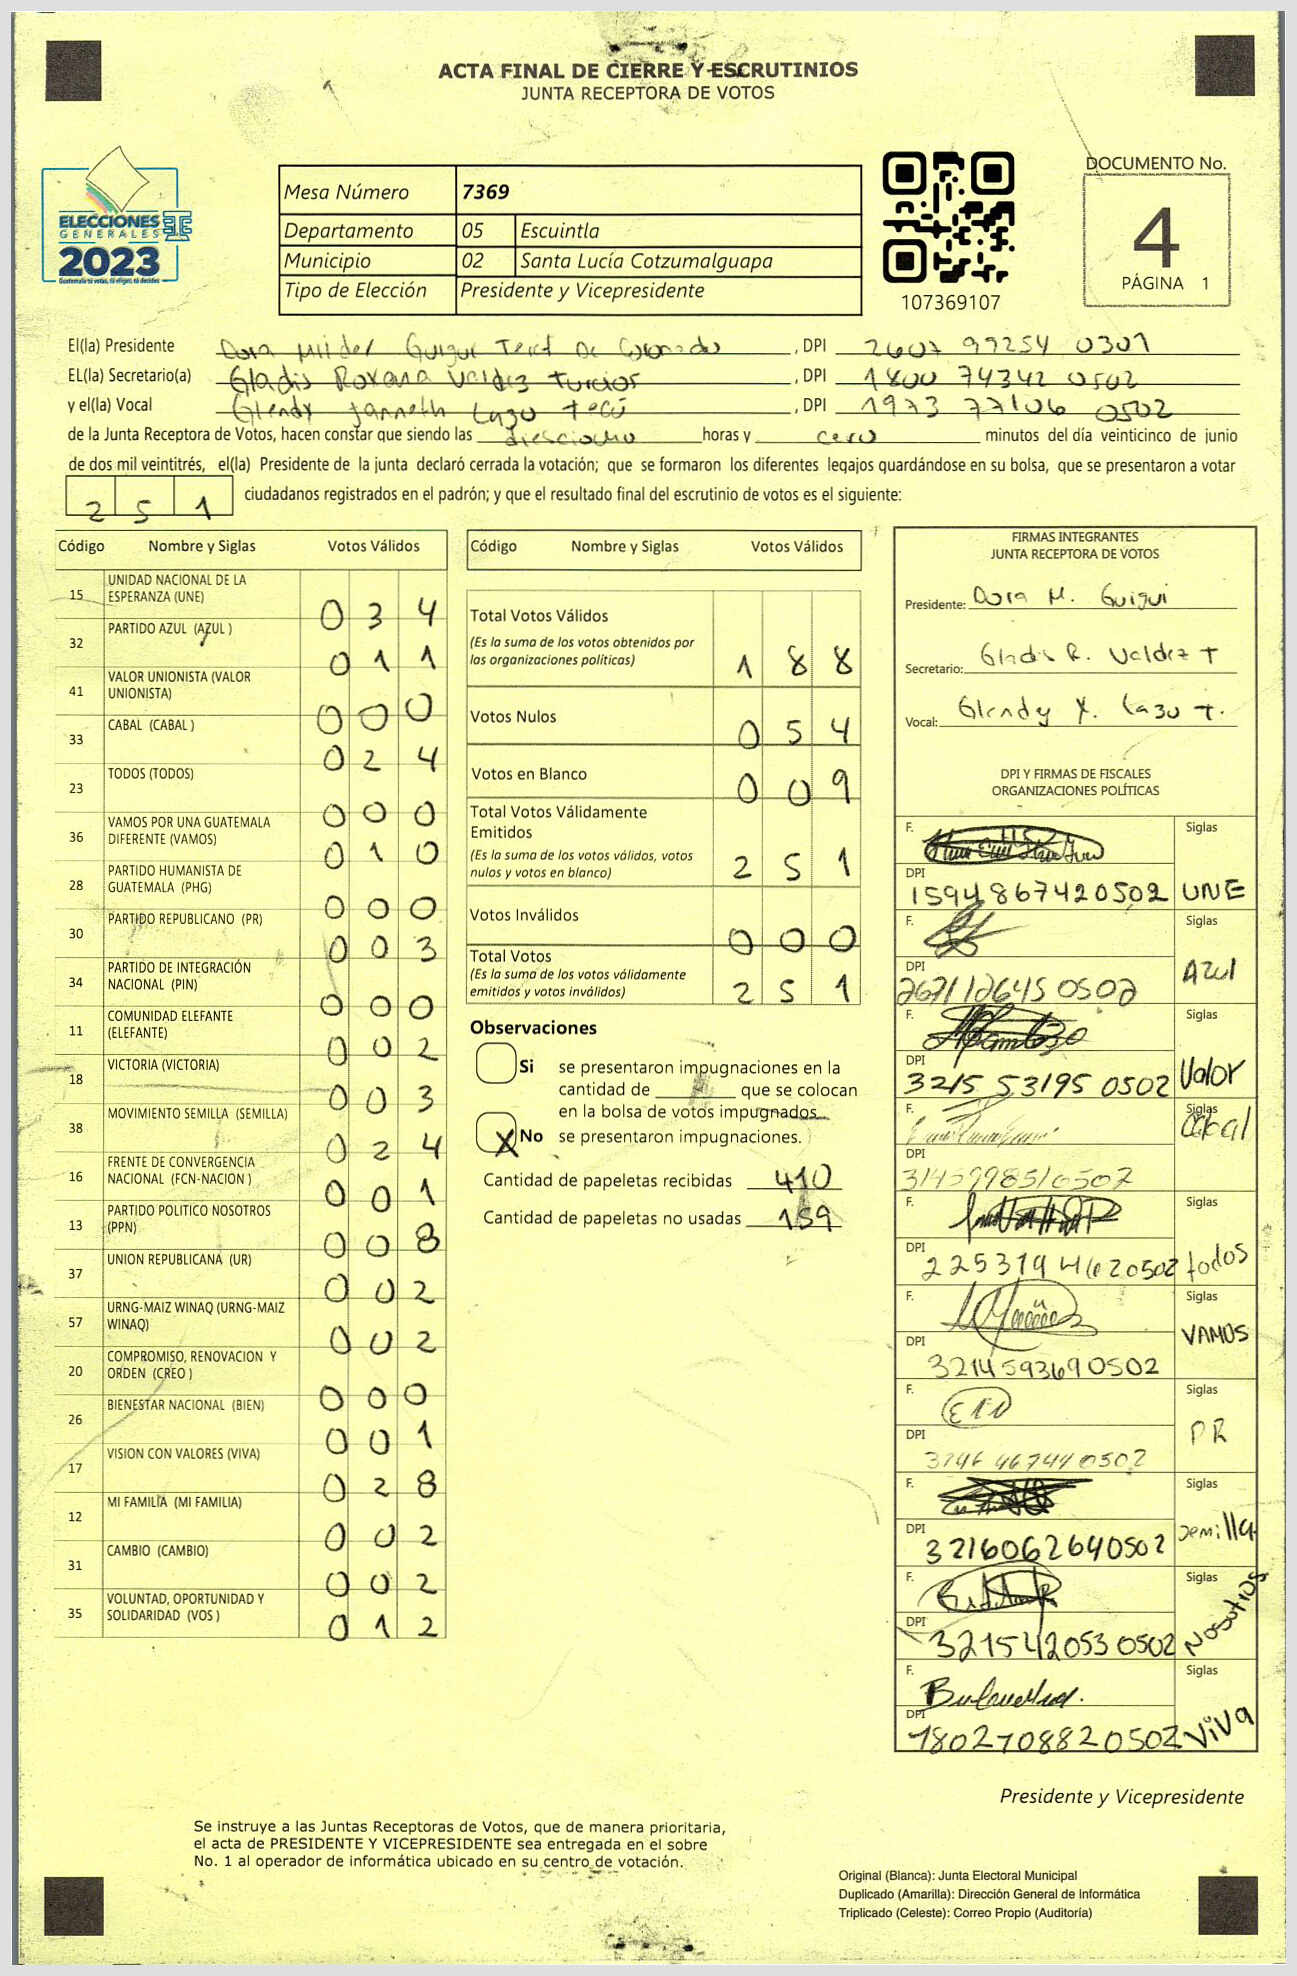 ACTA FINAL DE CIERRE Y ESCRUTINIOS
JUNTA RECEPTORA DE VOTOS
ELECCIONES
GENERALES
2023
Guatemala tú votas, tú eliges, tú decides
Mesa Número 7369
Departamento 05 Escuintla
Municipio 02 Santa Lucía Cotzumalguapa
Tipo de Elección Presidente y Vicepresidente
107369107
DOCUMENTO No.
4
PÁGINA 1
El(la) Presidente Dora Guigui De , DPI 2607 99254 0301
EL(la) Secretario(a) Gladis Roxana Valdez Turcios , DPI 1800 74342 0502
y el(la) Vocal Glendy Janneth Lazo Tecú , DPI 1973 77106 0502
de la Junta Receptora de Votos, hacen constar que siendo las diesciocho horas y cero minutos del día veinticinco de junio
de dos mil veintitrés, el(la) Presidente de la junta declaró cerrada la votación; que se formaron los diferentes legajos guardándose en su bolsa, que se presentaron a votar
251 ciudadanos registrados en el padrón; y que el resultado final del escrutinio de votos es el siguiente:
Código Nombre y Siglas Votos Válidos
15 UNIDAD NACIONAL DE LA ESPERANZA (UNE) 034
32 PARTIDO AZUL (AZUL ) 011
41 VALOR UNIONISTA (VALOR UNIONISTA) 000
33 CABAL (CABAL ) 024
23 TODOS (TODOS) 000
36 VAMOS POR UNA GUATEMALA DIFERENTE (VAMOS) 010
28 PARTIDO HUMANISTA DE GUATEMALA (PHG) 000
30 PARTIDO REPUBLICANO (PR) 003
34 PARTIDO DE INTEGRACIÓN NACIONAL (PIN) 000
11 COMUNIDAD ELEFANTE (ELEFANTE) 002
18 VICTORIA (VICTORIA) 003
38 MOVIMIENTO SEMILLA (SEMILLA) 024
16 FRENTE DE CONVERGENCIA NACIONAL (FCN-NACION ) 001
13 PARTIDO POLITICO NOSOTROS (PPN) 008
37 UNION REPUBLICANA (UR) 002
57 URNG-MAIZ WINAQ (URNG-MAIZ WINAQ) 002
20 COMPROMISO, RENOVACION Y ORDEN (CREO ) 000
26 BIENESTAR NACIONAL (BIEN) 001
17 VISION CON VALORES (VIVA) 028
12 MI FAMILIA (MI FAMILIA) 002
31 CAMBIO (CAMBIO) 002
35 VOLUNTAD, OPORTUNIDAD Y SOLIDARIDAD (VOS ) 012
Código Nombre y Siglas Votos Válidos
Total Votos Válidos
(Es la suma de los votos obtenidos por
las organizaciones políticas) 188
Votos Nulos 054
Votos en Blanco 009
Total Votos Válidamente
Emitidos
(Es la suma de los votos válidos, votos
nulos y votos en blanco) 251
Votos Inválidos 000
Total Votos
(Es la suma de los votos válidamente
emitidos y votos inválidos) 251
Observaciones
Si se presentaron impugnaciones en la
cantidad de que se colocan
en la bolsa de votos impugnados.
X No se presentaron impugnaciones.
Cantidad de papeletas recibidas 410
Cantidad de papeletas no usadas 159
FIRMAS INTEGRANTES
JUNTA RECEPTORA DE VOTOS
Presidente: Dora M. Guigui
Secretario: Gladis R. Valdez T
Vocal: Glendy Y. Lazo T.
DPI Y FIRMAS DE FISCALES
ORGANIZACIONES POLÍTICAS
F. Siglas
DPI 1594867420502 UNE
F. Siglas
DPI 2671126450502 Azul
F. Siglas
DPI 3215 53195 0502 Valor
F. Siglas
DPI Cabal
F. Siglas
DPI todos
F. Siglas
DPI 3214593690502 VAMOS
F. Siglas
DPI 3246 46744 0502 PR
F. Siglas
DPI 3216062640502 Semilla
F. Siglas
DPI 3215420530502 Nosotros
F. Siglas
DPI 1802708820502 ViVa
Presidente y Vicepresidente
Se instruye a las Juntas Receptoras de Votos, que de manera prioritaria,
el acta de PRESIDENTE Y VICEPRESIDENTE sea entregada en el sobre
No. 1 al operador de informática ubicado en su centro de votación.
Original (Blanca): Junta Electoral Municipal
Duplicado (Amarilla): Dirección General de Informática
Triplicado (Celeste): Correo Propio (Auditoría)